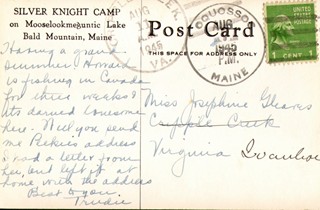 SILVER KNIGHT CAMP
on Mooselookmeguntic Lake
Bald Mountain, Maine
Post Card
THIS SPACE FOR ADDRESS ONLY
AUG
1945
VA.
OQUOSSOC
AUG
1945
P.M.
MAINE
1 CENT 1
Having a grand
summer. Howard
is fishing in Canada
for three weeks &
its derned lonesome
here. Will you send
me Pickies address
I had a letter from
her, and left it at
home with the address
Best to you.
Trudie
Miss Josephine Gleaves
Cripple Creek
Virginia
Ivanhoe